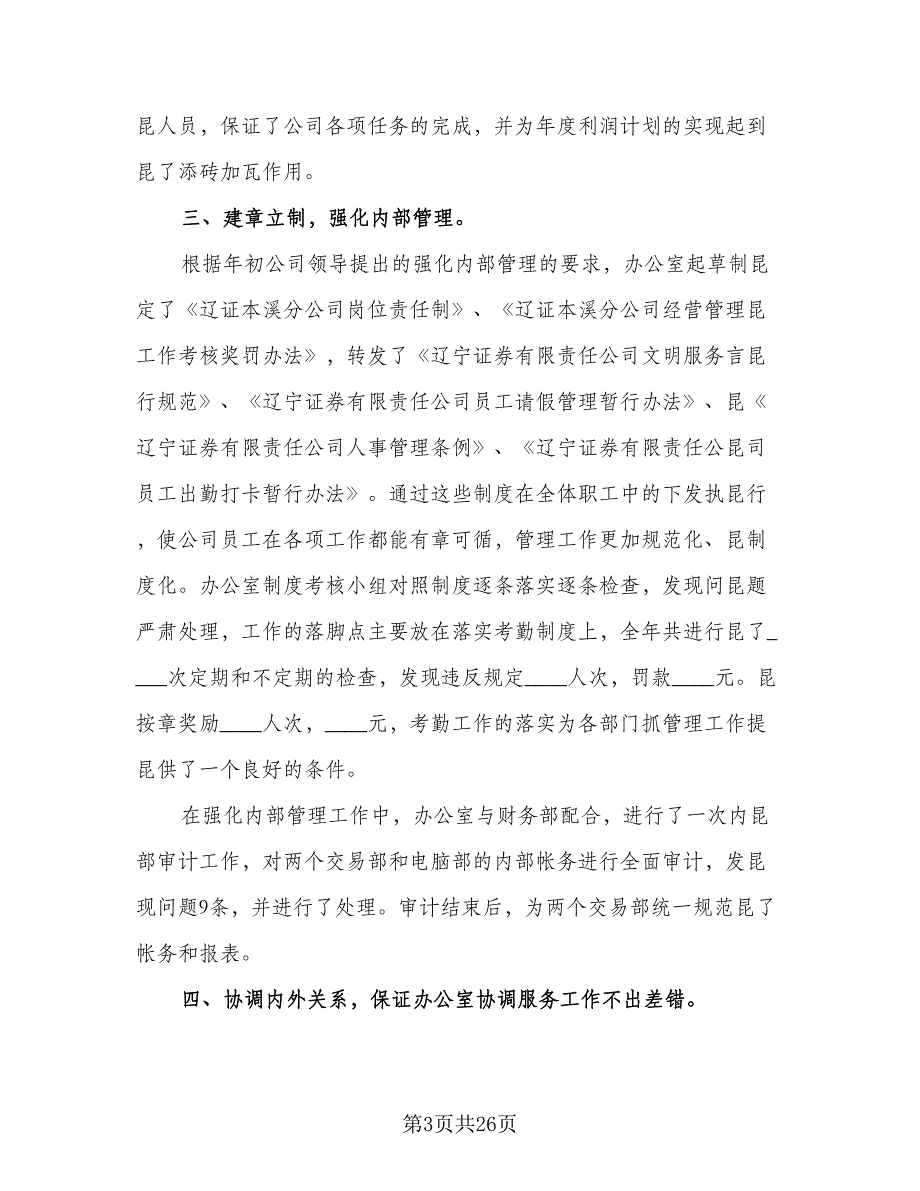 昆人员，保证了公司各项任务的完成，并为年度利润计划的实现起到
昆了添砖加瓦作用。
三、建章立制，强化内部管理。
根据年初公司领导提出的强化内部管理的要求，办公室起草制昆
定了《辽证本溪分公司岗位责任制》、《辽证本溪分公司经营管理昆
工作考核奖罚办法》，转发了《辽宁证券有限责任公司文明服务言昆
行规范》、《辽宁证券有限责任公司员工请假管理暂行办法》、昆《
辽宁证券有限责任公司人事管理条例》、《辽宁证券有限责任公昆司
员工出勤打卡暂行办法》。通过这些制度在全体职工中的下发执昆行
，使公司员工在各项工作都能有章可循，管理工作更加规范化、昆制
度化。办公室制度考核小组对照制度逐条落实逐条检查，发现问昆题
严肃处理，工作的落脚点主要放在落实考勤制度上，全年共进行昆了_
___次定期和不定期的检查，发现违反规定____人次，罚款____元。昆
按章奖励____人次，____元，考勤工作的落实为各部门抓管理工作提
昆供了一个良好的条件。
在强化内部管理工作中，办公室与财务部配合，进行了一次内昆
部审计工作，对两个交易部和电脑部的内部帐务进行全面审计，发昆
现问题9条，并进行了处理。审计结束后，为两个交易部统一规范昆了
帐务和报表。
四、协调内外关系，保证办公室协调服务工作不出差错。
第3页共26页